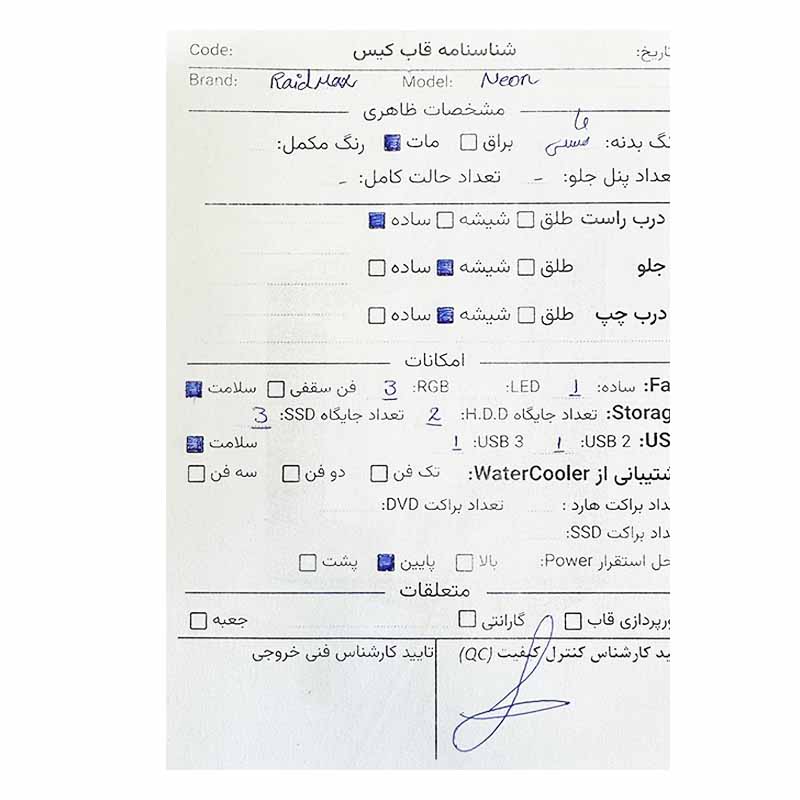 Code: شناسنامه قاب کیس اریخ:
Brand: RaidMax Model: Neon
مشخصات ظاهری
گ بدنه: براق مات رنگ مکمل:
عداد پنل جلو: - تعداد حالت کامل: -
درب راست طلق شیشه ساده
جلو طلق شیشه ساده
درب چپ طلق شیشه ساده
امکانات
Fa: ساده: 1 LED: RGB: 3 فن سقفی سلامت
Storag: تعداد جایگاه H.D.D: 2 تعداد جایگاه SSD: 3
US: USB 2: 1 USB 3: 1 سلامت
شتیبانی از WaterCooler: تک فن دو فن سه فن
داد براکت هارد : تعداد براکت DVD:
داد براکت SSD:
حل استقرار Power: بالا پایین پشت
متعلقات
ورپردازی قاب گارانتی جعبه
ید کارشناس کنترل کیفیت (QC) تایید کارشناس فنی خروجی